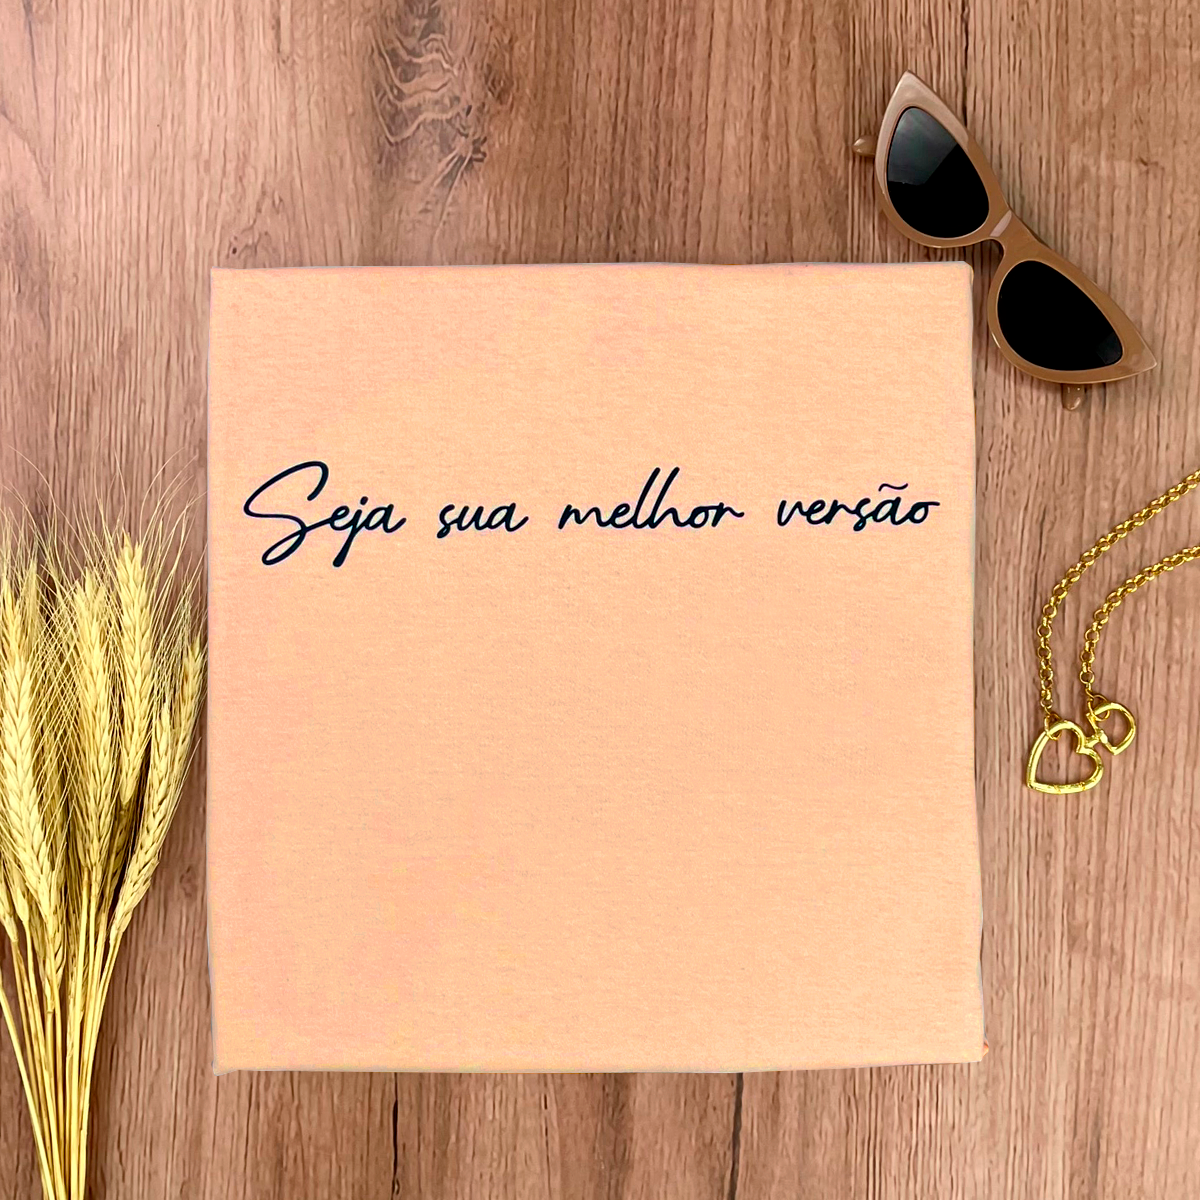 Seja sua melhor versão